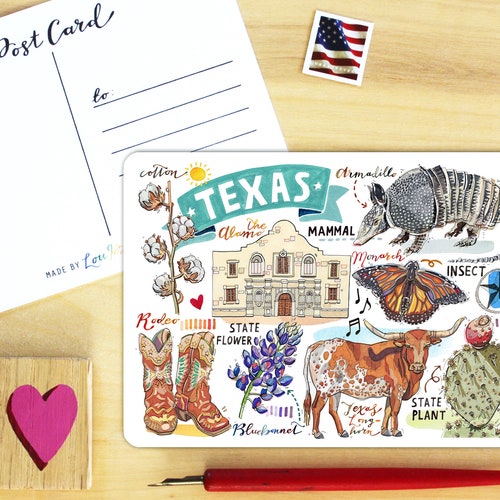 Post Card
to:
MADE BY
cotton
TEXAS
Armadillo
The
Alamo
MAMMAL
Monarch
INSECT
Rodeo
STATE
FLOWER
Bluebonnet
Texas
Long-
horn
STATE
PLANT